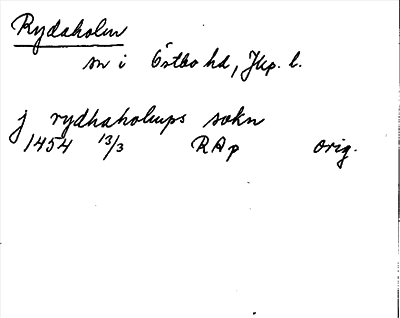 Rydaholm
sn i Östbo hd, Jkp. l.
j rydhaholmps sokn
1454 13/3 RAp orig.